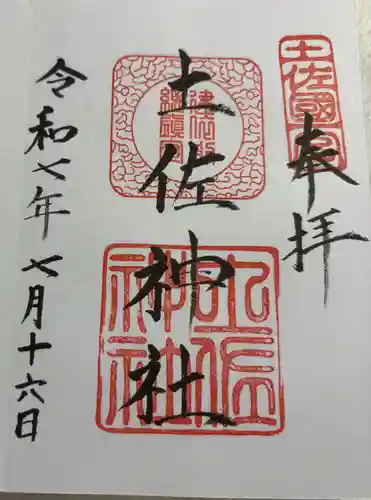 奉拝
土佐國一宮
土佐神社
土佐神社
令和七年七月十六日